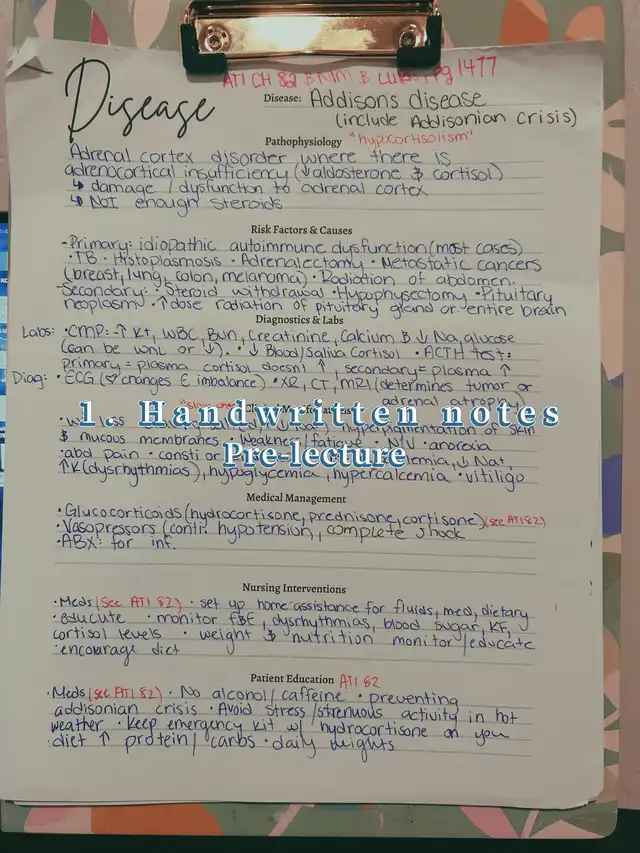 ATI CH 82
pg 1477
Disease
Disease: Addisons disease
(include Addisonian crisis)
Pathophysiology "hypocortisolism"
Adrenal cortex disorder where there is
adrenocortical insufficiency (↓aldosterone & cortisol)
↳ damage / dysfunction to adrenal cortex
↳ Not enough steroids
Risk Factors & Causes
-Primary: idiopathic autoimmune dysfunction (most cases)
•TB •Histoplasmosis •Adrenalectomy •Metastatic cancers
(breast, lung, colon, melanoma) •Radiation of abdomen.
-Secondary: •Steroid withdrawal •Hypophysectomy •Pituitary
neoplasm •↑dose radiation of pituitary gland or entire brain
Diagnostics & Labs
Labs: •CMP: ↑ K+, WBC, Bun, Creatinine, Calcium & ↓ Na, glucose
(can be WNL or ↓). •↓ Blood/Saliva Cortisol •ACTH test:
primary = plasma cortisol doesn't ↑, secondary = plasma ↑
Diag: •ECG (changes c imbalance) •XR, CT, MRI (determines tumor or
adrenal atrophy)
1. Handwritten notes
hyperpigmentation of skin
& mucous membranes •Weakness/fatigue •N/V •anorexia
Pre-lecture
•abd pain •consti or ↓ Na+,
↑K (dysrhythmias), hypoglycemia, hypercalcemia •vitiligo
Medical Management
•Glucocorticoids (hydrocortisone, prednisone, cortisone) (see ATI 82)
•Vasopressors (contr. hypotension, complete shock
•ABX: for inf.
Nursing Interventions
•Meds (See ATI 82) •set up home assistance for fluids, med, dietary
•educute •monitor F&E, dysrhythmias, blood sugar, KF,
cortisol levels •weight & nutrition monitor/educate
•encourage diet
Patient Education ATI 82
•Meds (see ATI 82) •No alcohol/caffeine •preventing
addisonian crisis •Avoid stress/strenuous activity in hot
weather •Keep emergency kit w/ hydrocortisone on you
•diet ↑ protein/carbs •daily weights